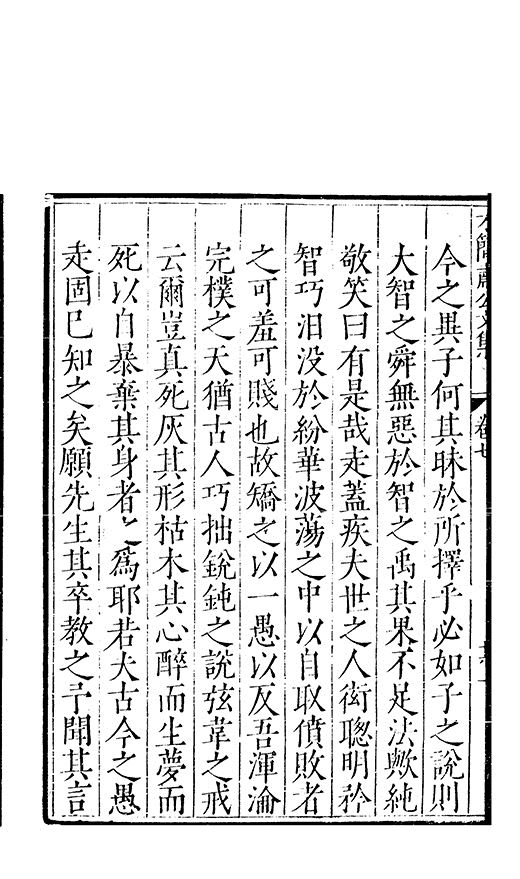 今之異子何其昧於所擇乎必如子之說則
大智之舜無惡於智之禹其果不足法歟純
敬笑曰有是哉走蓋疾夫世之人衒聰明矜
智巧汩没於紛華波蕩之中以自取僨敗者
之可羞可賤也故矯之以一愚以反吾渾淪
完樸之天猶古人巧拙銳鈍之說弦韋之戒
云爾豈真死灰其形枯木其心醉而生夢而
死以自暴棄其身者之爲耶若夫古今之愚
走固已知之矣願先生其卒教之予聞其言
公文集
卷七